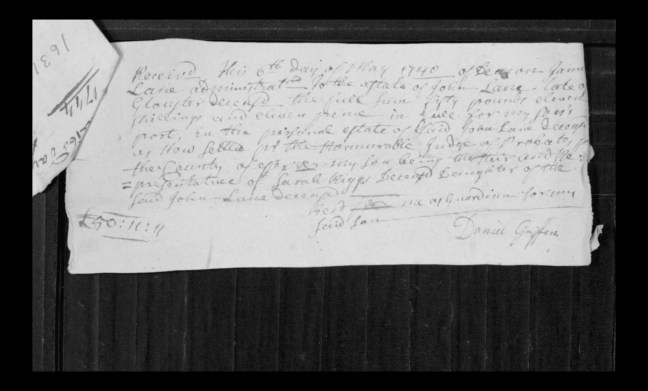 1631
1744
Receivd this 6th day of May 1740 of Deacon James
Lane administrator to the estate of John Lane late of
Gloucster deceasd the full sum fifty pounds eleven
shillings and eleven pence in full for my son's
part, in the personal estate of said John Lane deceasd
as Now setled by the Honnourable Judge of Probates for
the County of Essex my son being the Heir and Re=
=presentative of Sarah Deceasd Daughter of the
said John Lane deceasd
recd me as Guardian for my
said son
£50:11:11
Daniel Giffen